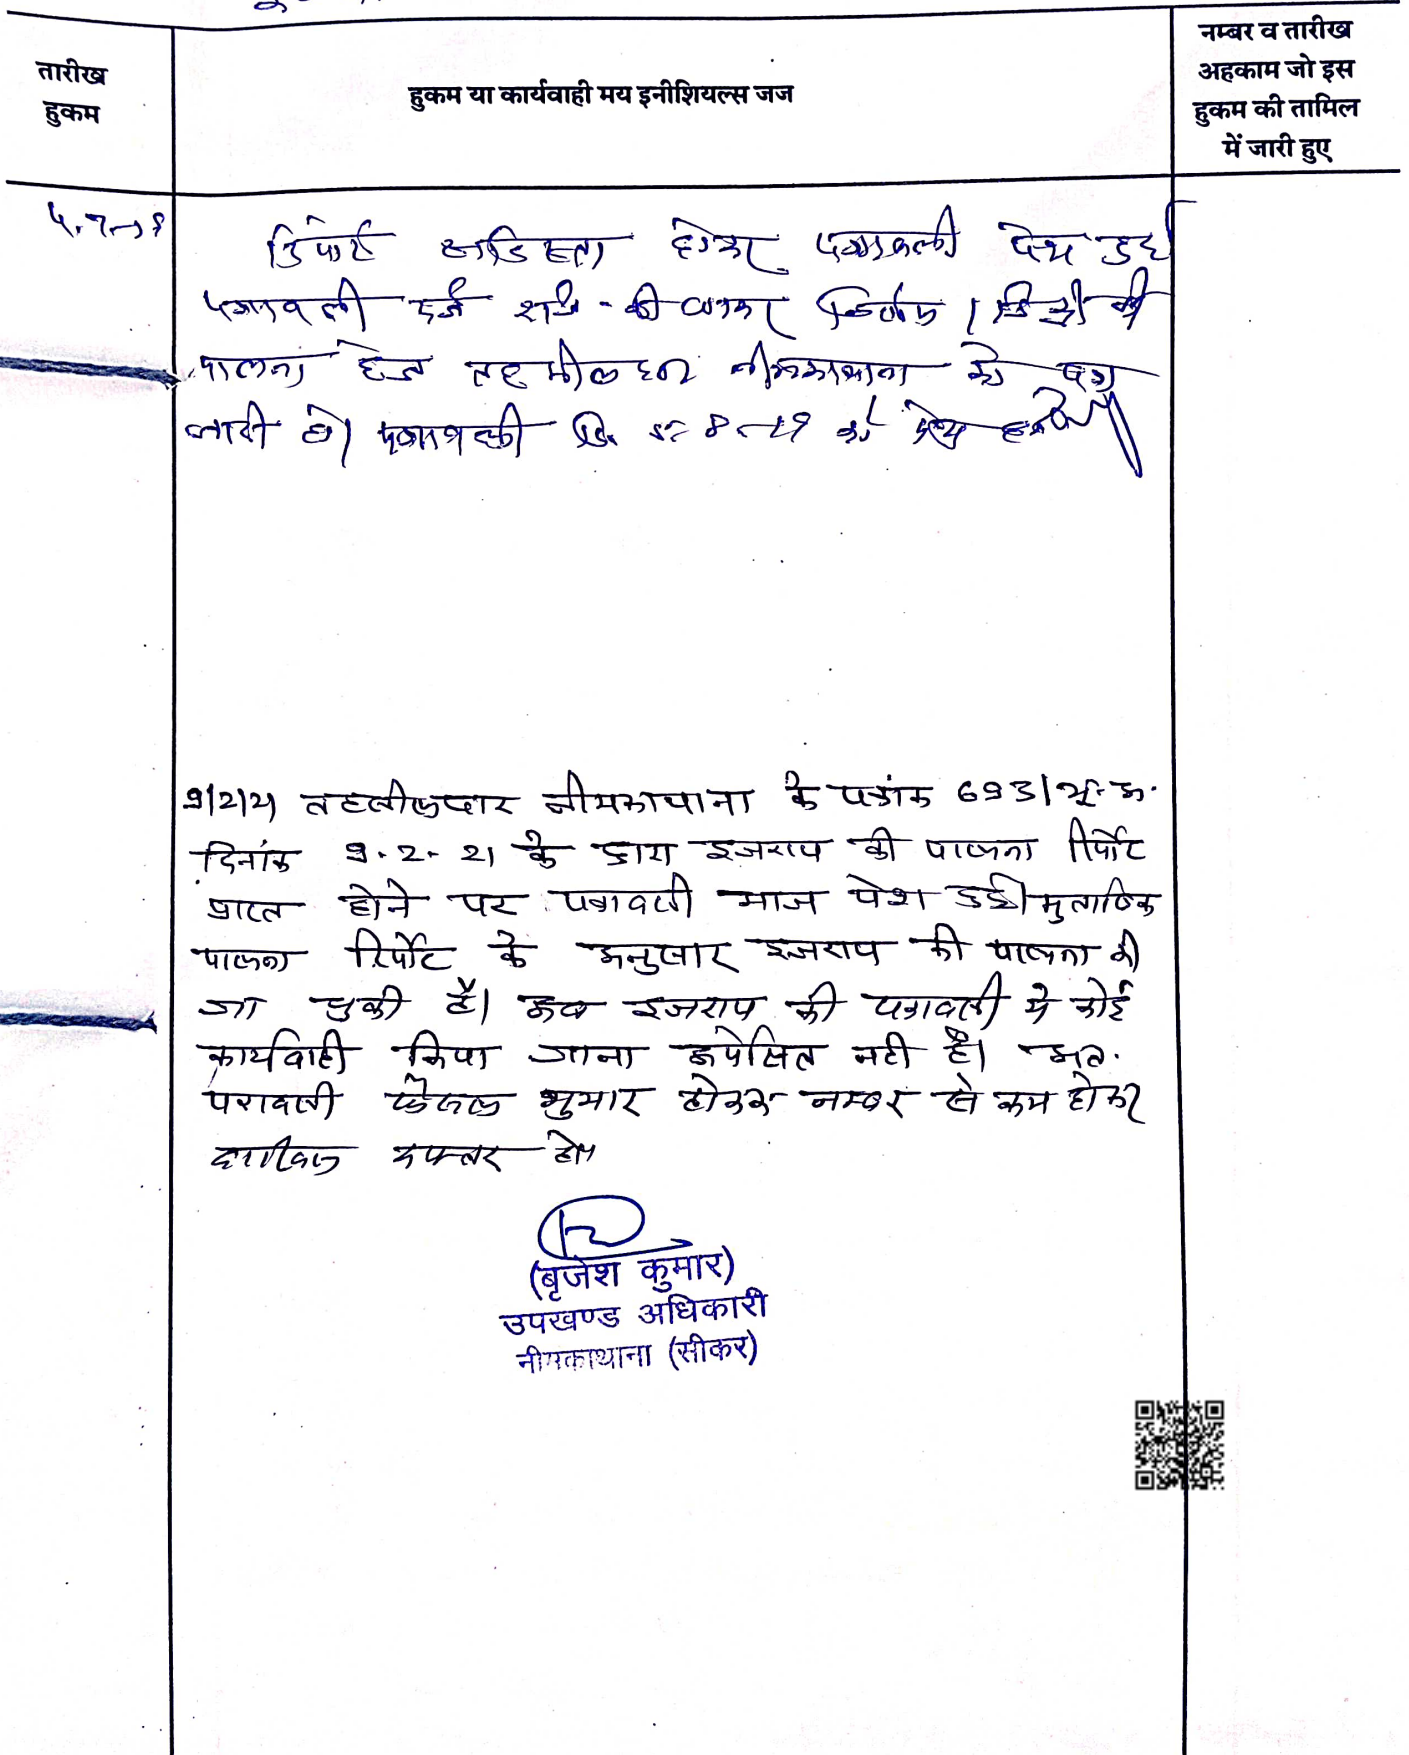 तारीख
हुकम
हुकम या कार्यवाही मय इनीशियल्स जज
नम्बर व तारीख
अहकाम जो इस
हुकम की तामिल
में जारी हुए
रिपोर्ट होकर पत्रावली पेश हुई
पत्रावली दर्ज की जाकर निर्णय / डिक्री की
पालना हेतु तहसीलदार नीमकाथाना को पत्र
जारी हो। पत्रावली दि. को पेश
9/2/21 तहसीलदार नीमकाथाना के पत्रांक 693/भू.अ.
दिनांक 9.2.21 के द्वारा इजराय की पालना रिपोर्ट
प्राप्त होने पर पत्रावली आज पेश हुई। मुताबिक
पालना रिपोर्ट के अनुसार इजराय की पालना की
जा चुकी है। अब इजराय की पत्रावली मे कोई
कार्यवाही किया जाना अपेक्षित नही है। अत.
पत्रावली फैसल शुमार होकर नम्बर से कम होकर
दाखिल दफ्तर हो।
(बृजेश कुमार)
उपखण्ड अधिकारी
नीमकाथाना (सीकर)